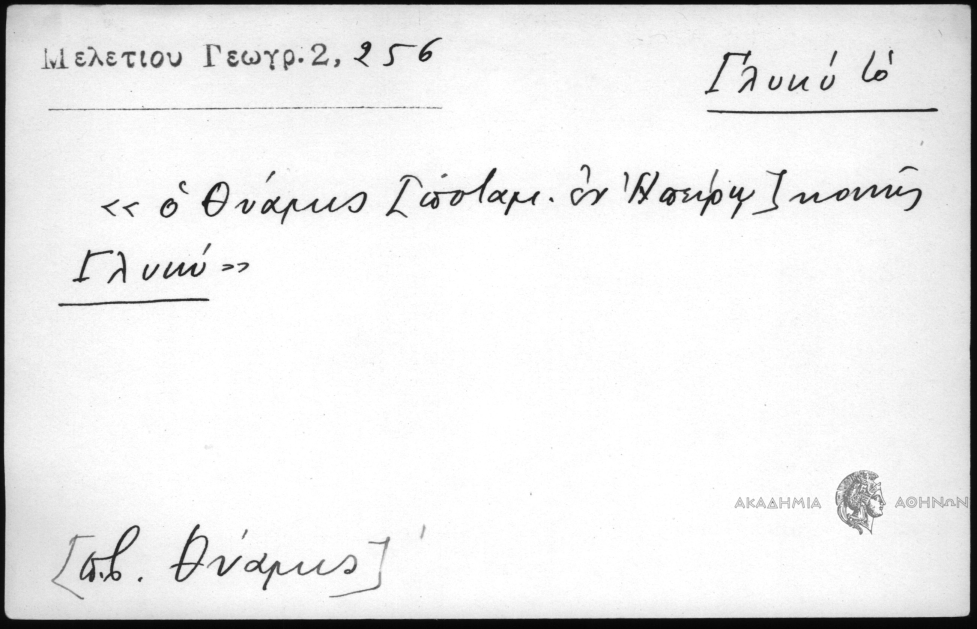 Μελετιου Γεωγρ. 2, 256
Γλυκύ τό
«ὁ Θύαμις [ποταμ. ἐν Ἠπείρῳ] κοινῶς
Γλυκύ»
ΑΚΑΔΗΜΙΑ ΑΘΗΝΩΝ
[πβ. Θύαμις]